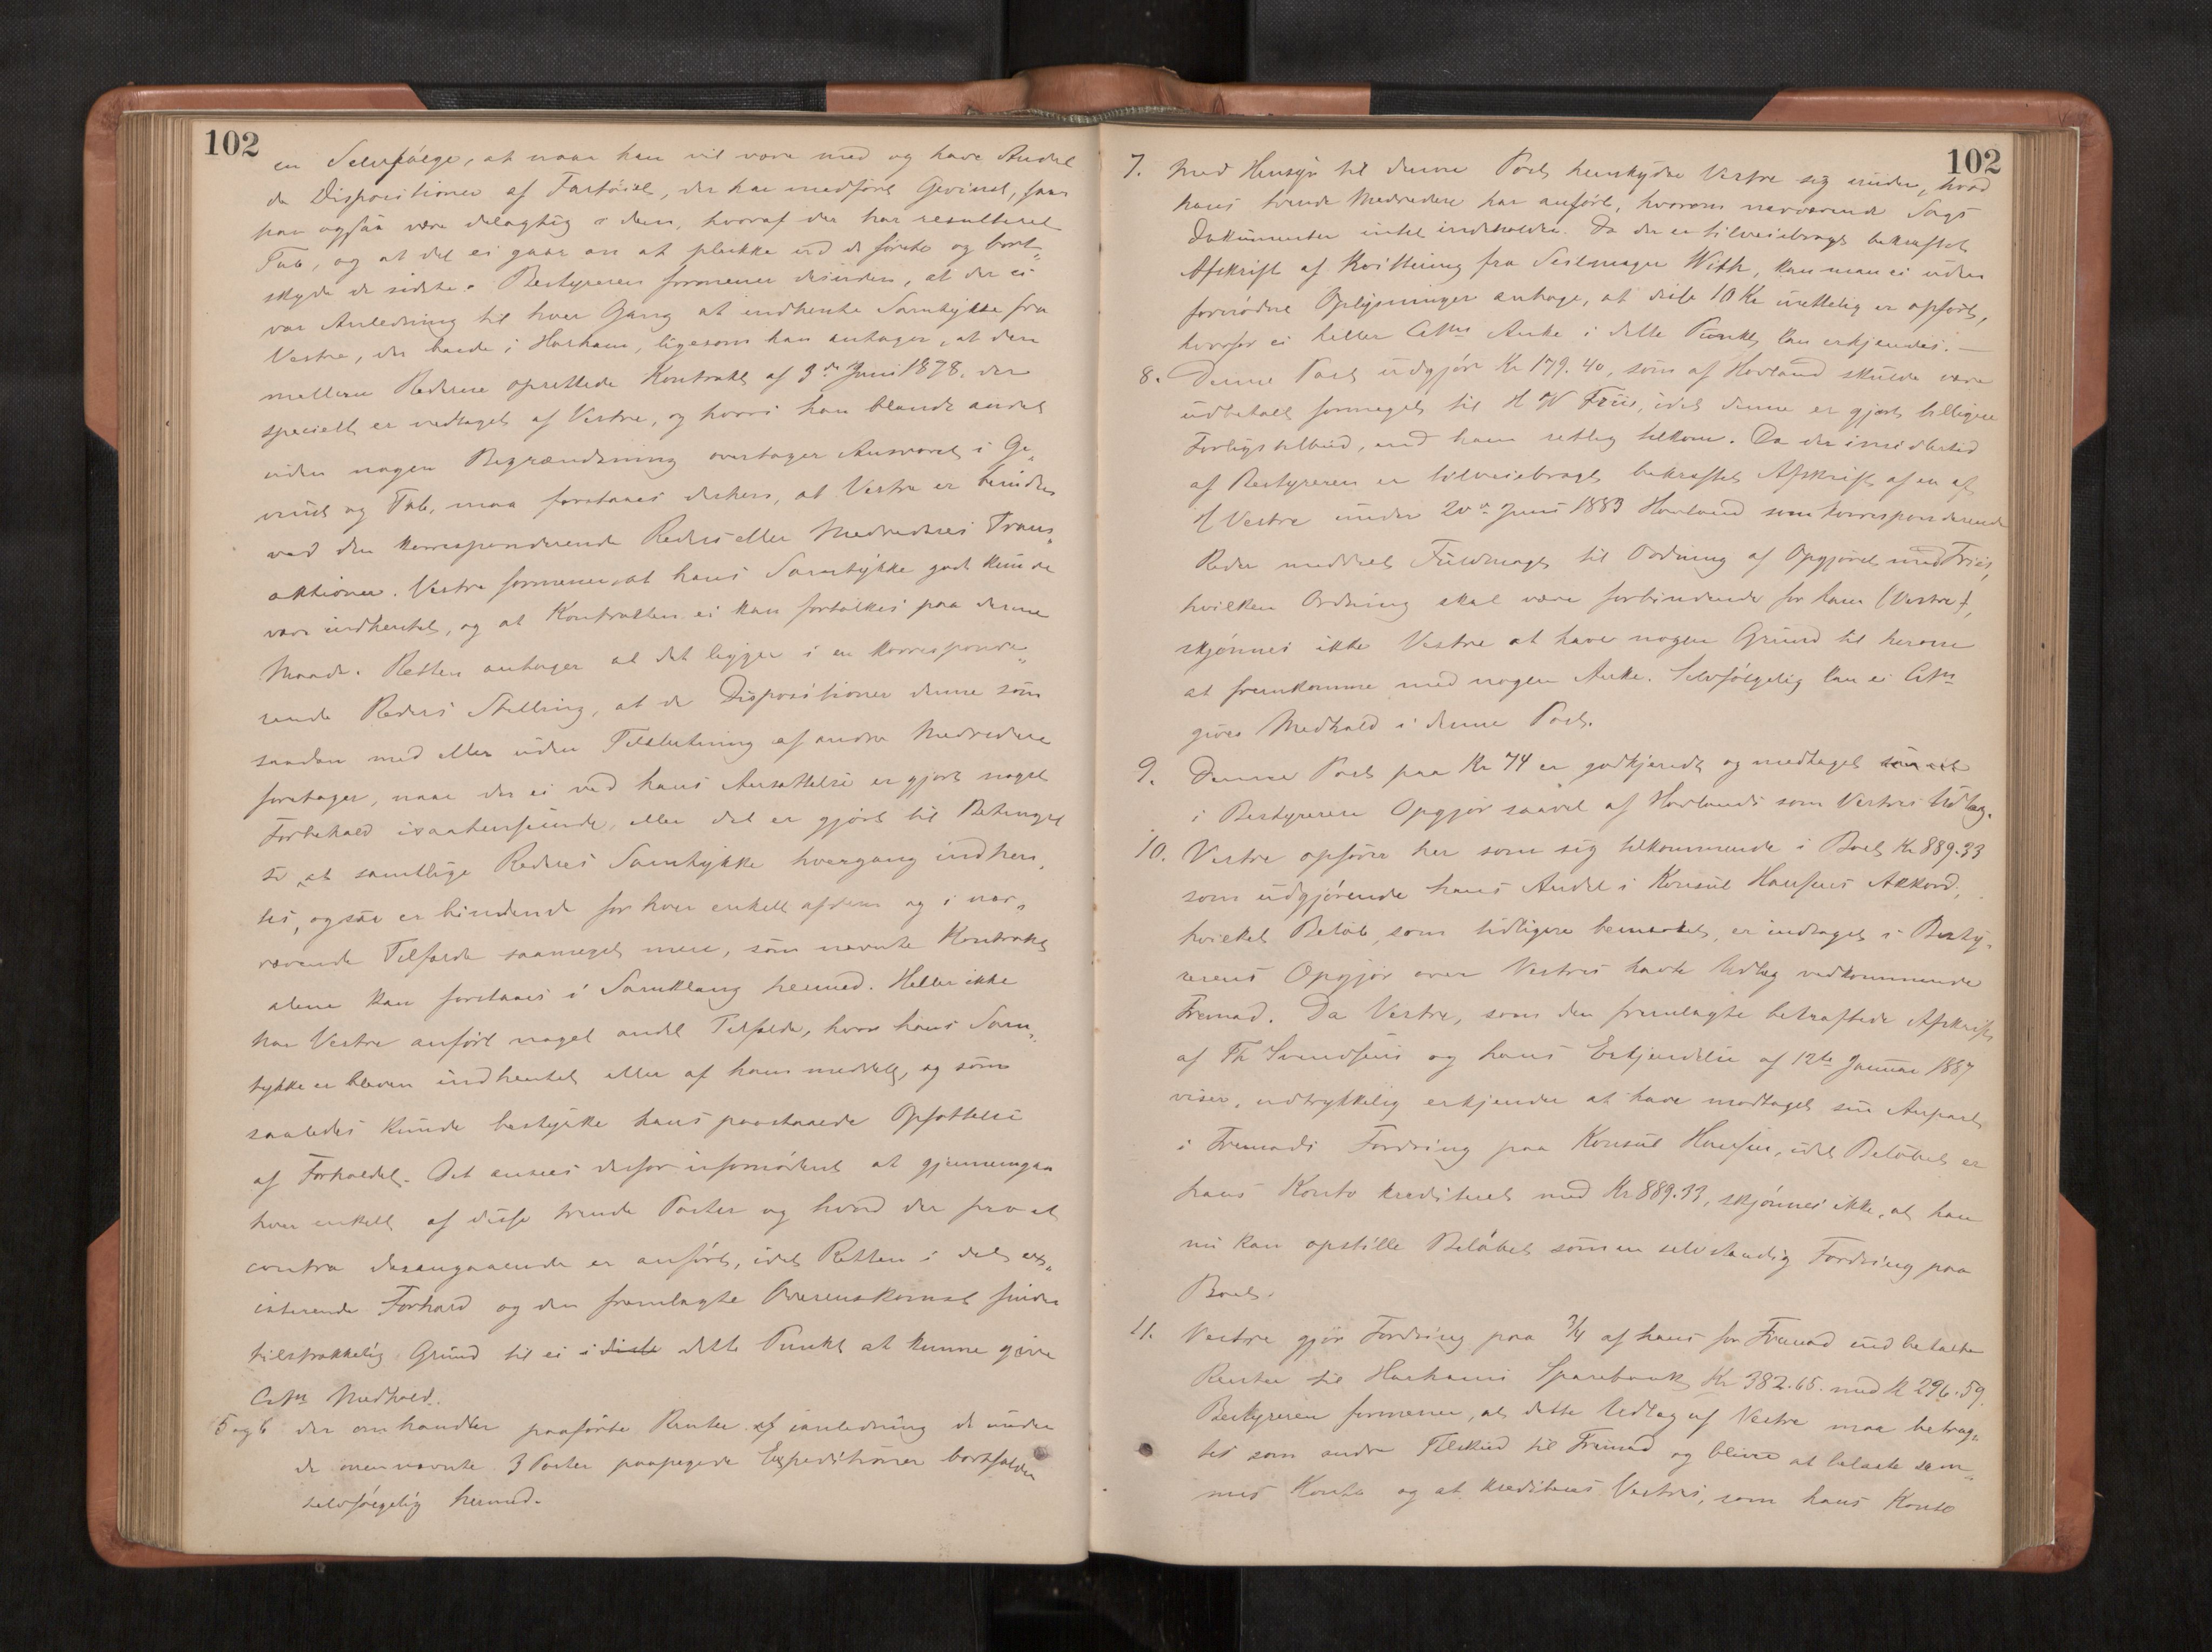 102
en Selvfølge, at naar han vil være med og have Andel
de Dispositioner af Fartøiet, der har medført Gevinst, faar
han ogsaa være delagtig i dem, hvoraf der har resulteret
Tab, og at det ei gaar an at plukke ud de første og bort-
skyde de sidste. Bestyreren formener desuden, at der ei
var Anledning til hver Gang at indhente Samtykke fra
Vestre, der boede i Harham, ligesom han antager, at den
mellem Rederne oprettede Kontrakt af 3die Juni 1878, der
specielt er vedtaget af Vestre, og hvori han blandt andet
uden nogen Begrændsning overtager Ansvaret i Ge-
vinst og Tab, maa forstaaes derhen, at Vestre er bunden
ved den korresponderende Reders eller Medrederes Trans-
aktioner. Vestre formener, at hans Samtykke godt kunde
være indhentet, og at Kontrakten ei kan fortolkes paa denne
Maade. Retten antager at det ligger i en korresponde-
rende Reders Stilling, at de Dispositioner denne som
saadan med eller uden Tilslutning af andre Medredere
foretager, naar der ei ved hans Ansættelse er gjort noget
Forbehold isaahenseende, eller det er gjort til Betingel
se, at samtlige Rederes Samtykke hvergang indhen-
tes, ogsaa er bindende for hver enkelt af dem og i nær-
værende Tilfælde saameget mere, som nævnte Kontrakt
alene kan forstaaes i Samklang hermed. Heller ikke
har Vestre anført noget andet Tilfælde, hvor hans Sam-
tykke er bleven indhentet eller af ham meddelt, og som
saaledes kunde bestyrke hans paastaaede Opfattelse
af Forholdet. Det ansees derfor ufornødent at gjennemgaa
hver enkelt af disse trende Poster og hvad der pro et
contra desangaaende er anført, idet Retten i det ex-
isterende Forhold og den fremlagte Overenskomst finder
tilstrækkelig Grund til ei i disse dette Punkt at kunne give
Citn Medhold.
5 og 6 der omhandler paaførte Renter af ianledning de under
de ovennævnte 3 Poster paapegede Expeditioner bortfalder
selvfølgelig hermed.
102
7. Med Hensyn til denne Post henskyder Vestre sig under, hvad
hans trende Medredere har anført, hvorom nærværende Sags
Dokumenter intet indeholder. Da der er tilveiebragt bekræftet
Afskrift af Kvittering fra Seilmager With, kan man ei uden
fornødne Oplysninger antage, at disse 10 Kr urettelig er opført,
hvorfor ei heller Citns Anke i dette Punkt kan erkjendes. —
8. Denne Post udgjør Kr 179.40, som af Hovland skulde være
udbetalt formeget til H W Friis, idet denne er gjort billigere
Forligstilbud, end ham retlig tilkom. Da der imidlertid
af Bestyreren er tilveiebragt bekræftet Afskrift af en af
H Vestre under 20de Juni 1883 Hovland som korresponderende
Reder meddelt Fuldmagt til Ordning af Opgjøret med Friis,
hvilken Ordning skal være forbindende for ham (Vestre),
skjønnes ikke Vestre at have nogen Grund til herom
at fremkomme med nogen Anke. Selvfølgelig kan ei Citn
gives Medhold i denne Post.
9. Denne Post paa Kr 74 er godkjendt og medtaget
i Bestyrerens Opgjør saavel af Hovlands som Vestres Udlæg.
10. Vestre opfører her som sig tilkommende i Boet Kr 889.33
som udgjørende hans Andel i Konsul Hansens Akkord,
hvilket Beløb, som tidligere bemerket, er indtaget i Besty-
rerens Opgjør over Vestres havte Udlæg vedkommende
Fremad. Da Vestre, som den fremlagte bekræftede Afskrift
af Th Svendsens og hans Erkjendelse af 12te Januar 1887
viser, udtrykkelig erkjender at have modtaget sin Anpart
i Fremads Fordring paa Konsul Hansen, idet Beløbet er
hans Konto krediteret med Kr 889.33, skjønnes ikke, at han
nu kan opstille Beløbet som en selvstændig Fordring paa
Boet.
11. Vestre gjør Fordring paa 3/4 af hans for Fremad udbetalte
Renter til Harhams Sparebank Kr 382.65. med Kr 296.59.
Bestyreren formener, at dette Udlæg af Vestre maa betrag-
tes som andre Tilskud til Fremad og blive at belaste sam-
mes Konto og at krediteres Vestres, som hans Konto